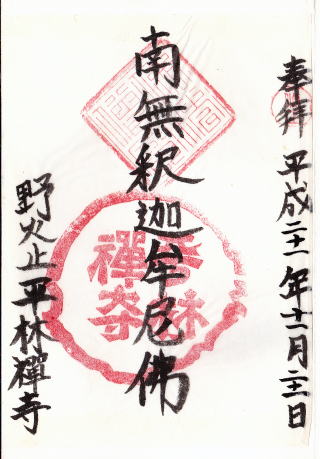 奉拝 平成二十一年十二月二十三日
南無釈迦牟尼佛
野火止平林禅寺